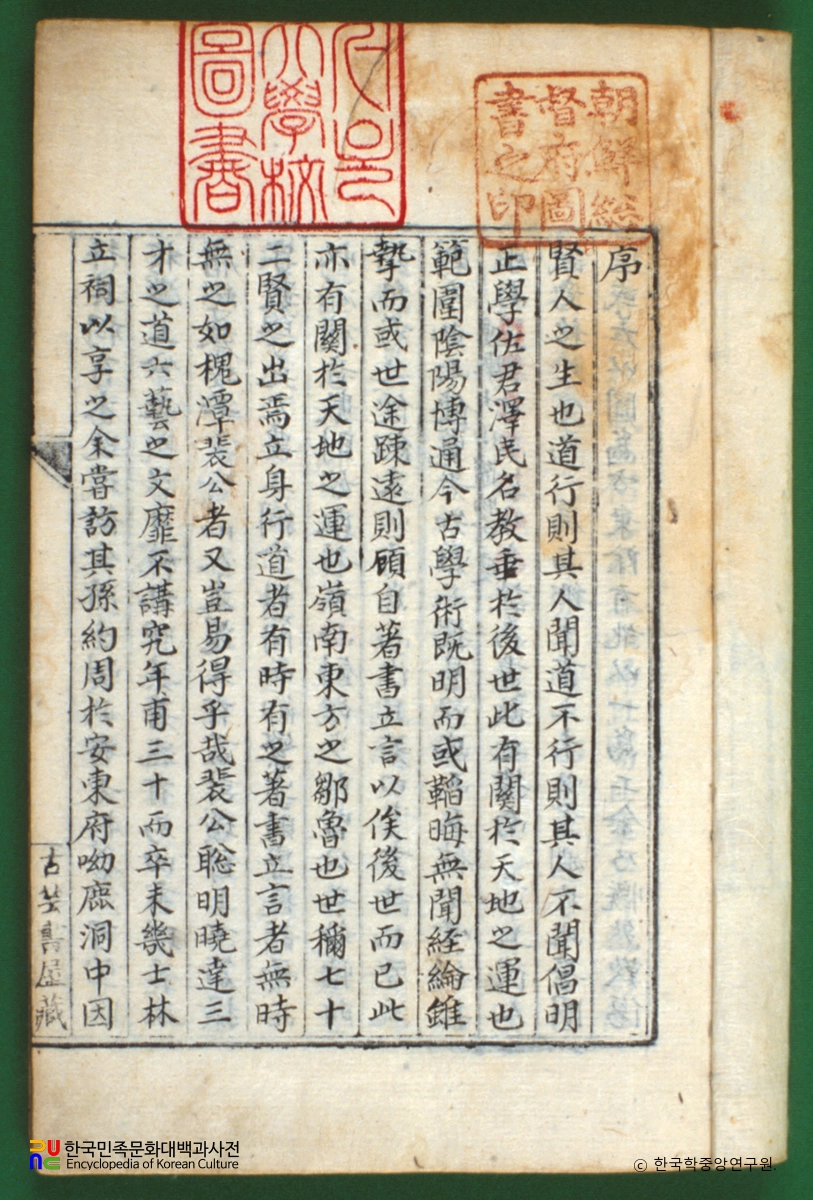 朝鮮總
督府圖
書之印
大學校
圖書
序
賢人之生也道行則其人聞道不行則其人不聞倡明
正學佐君澤民名教垂於後世此有關於天地之運也
範圍陰陽博通今古學術既明而或韜晦無聞経綸雖
摯而或世途踈遠則顧自著書立言以俟後世而已此
亦有關於天地之運也嶺南東方之鄒魯也世稱七十
二賢之出焉立身行道者有時有之著書立言者無時
無之如槐潭裴公者又豈易得乎哉裴公聡明曉達三
才之道六藝之文靡不講究年甫三十而卒未幾士林
立祠以享之余嘗訪其孫約周於安東府呦鹿洞中因
古芸書屋藏
한국민족문화대백과사전
Encyclopedia of Korean Culture
© 한국학중앙연구원.